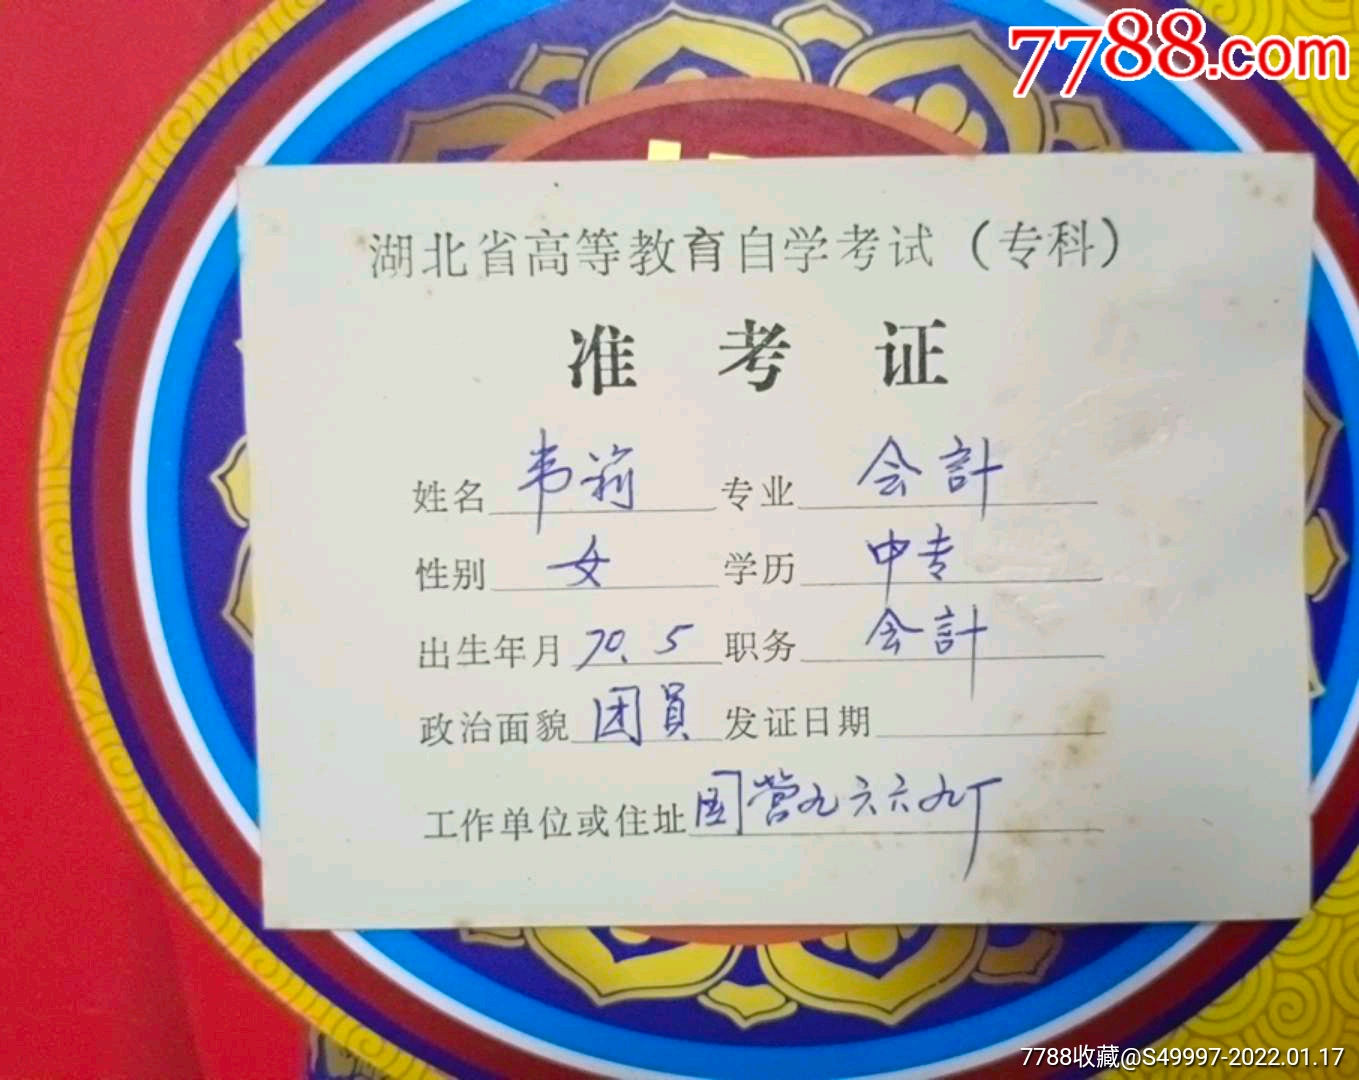 7788.com
湖北省高等教育自学考试（专科）
准考证
姓名 韦莉 专业 会計
性别 女 学历 中专
出生年月 70.5 职务 会計
政治面貌 团員 发证日期
工作单位或住址 国营九六六九厂
7788收藏@S49997-2022.01.17